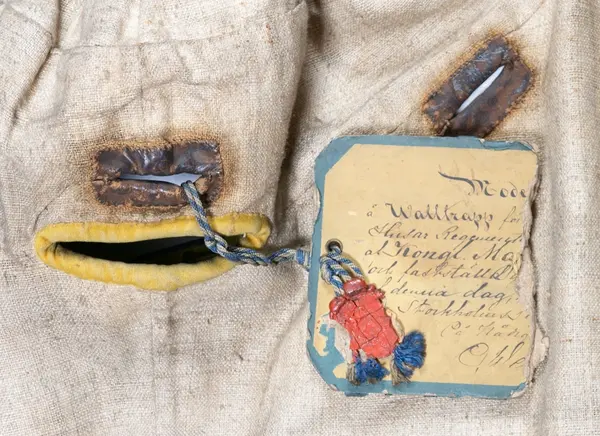 Mode
à Walltrapp fö
Husar Regemen
af Kongl. Ma
och fastställd
denna dag
Stockholms